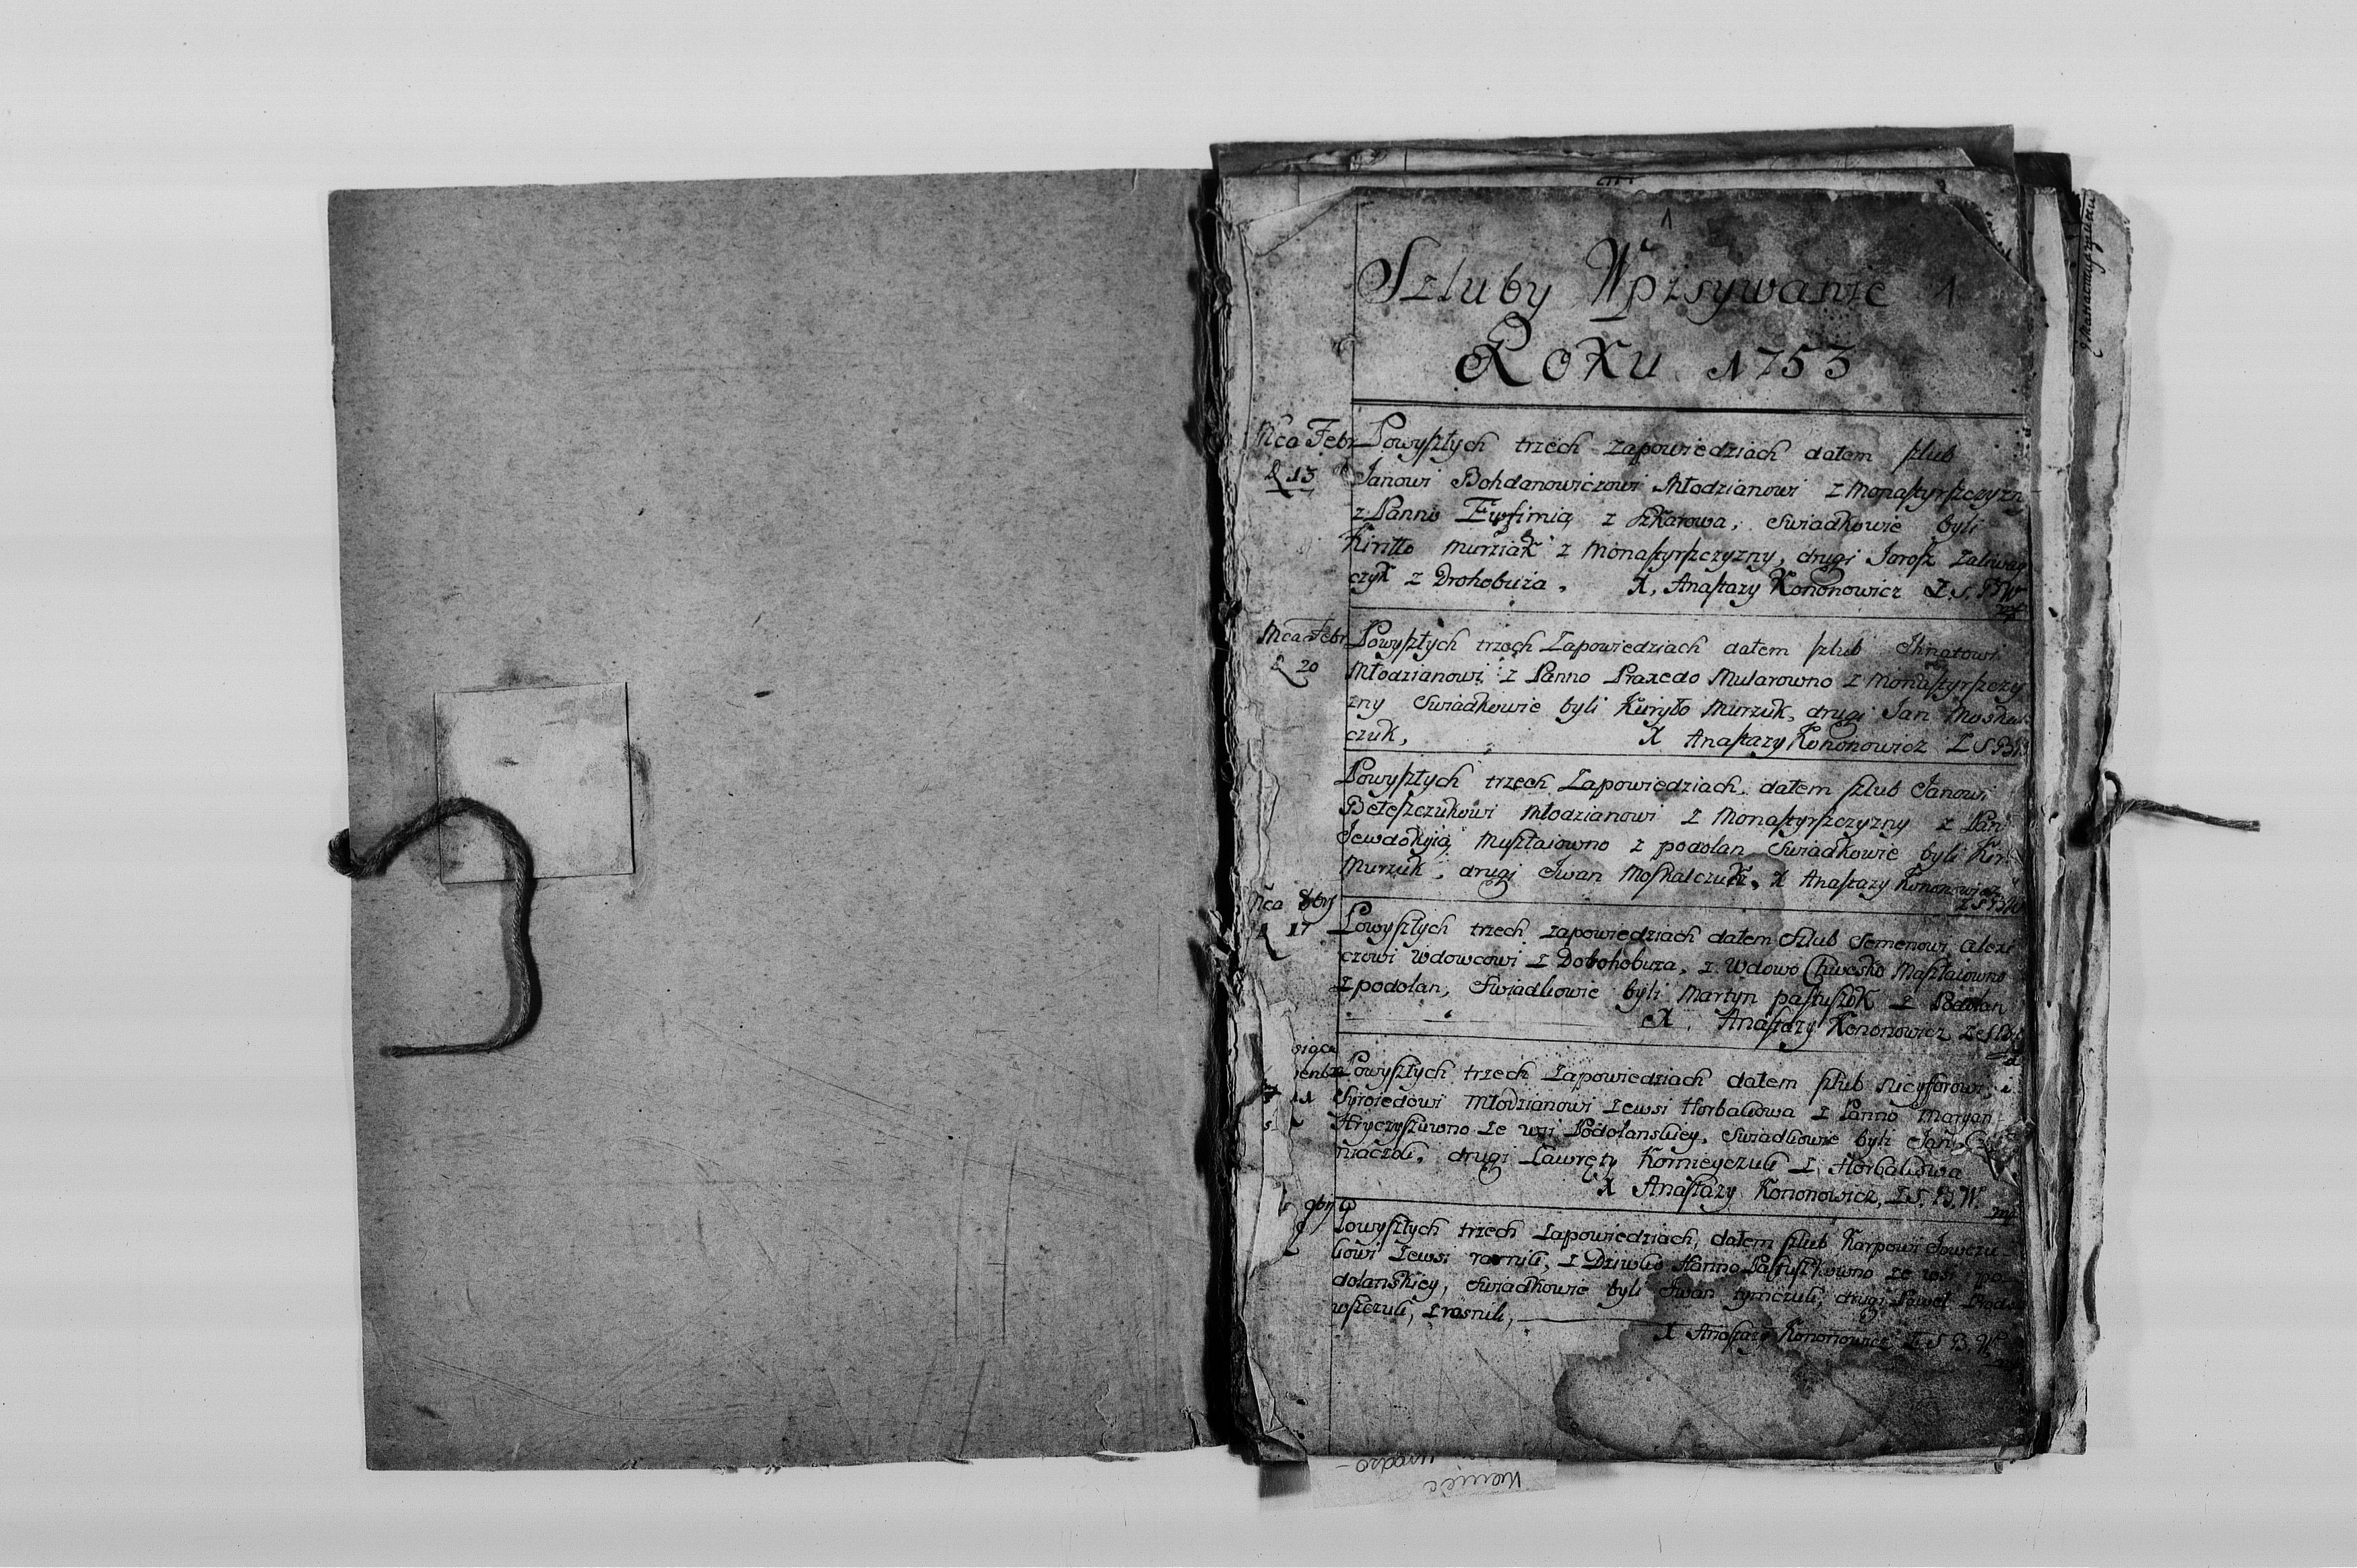 1
Szluby Wpisywanie 1
Roku 1753
Mca Febr
D 13
Powyszłych trzech zapowiedziach dałem szlub
Janowi Bohdanowiczowi Młodzianowi z Monastyrszczyzn
z Panno Ewfimią z Szkarowa, Swiadkowie byli
Kiriłło Murziak z Monastyrszczyzny, drugi Jarosz
czyk z Drohobuża, X, Anastazy Kononowicz Z. S. B W
mp
Mca Febr
D 20
Powyszłych trzech Zapowiedziach dałem szlub Ihnatowi
Młodzianowi z Panno Praxedo Mularowno z Monastyrszczy
zny Swiadkowie byli Kuryło Murzuk, drugi Jan
czuk, X Anastazy Kononowicz Z S B
Powyszłych trzech Zapowiedziach dałem szlub Janowi
Beleszczukowi Młodzianowi z Monastyrszczyzny z Pan
Jewdokyią Muszłaiowno z podolan Swiadkowie byli Kir
Murzuk, drugi Iwan Moskalczuk, X Anastazy Kononowicz
Z S B W
Mca 8brj
D 17
Powyszłych trzech zapowiedziach dałem Szlub Semenowi Alexi
czowi Wdowcowi z Dobohobuza, z Wdowo Chwesko Maszłaiowno
z podolan, Swiadkowie byli Martyn pastuszok z Podolan
X. Anastazy Kononowicz
Powyszłych trzech Zapowiedziach dałem szlub Nicyforowi
Syroiedowi Młodzianowi zewsi Horbakowa z Panno Maryan
Hryczyszuwno ze wsi Podolanskiey, Swiadkowie byli Jan
niaczok, drugi Lawręty Kornieyczuk z Horbakowa
X Anastazy Kononowicz, Z S. B. W.
mp
9brj
Powyszłych trzech Zapowiedziach, dałem szlub Karpowi Jowczu
kowi zewsi z Dziwko Hanno Pastuszkowno ze wsi po
dolanskiey, Swiadkowie byli Iwan tymczuk, drugi Paweł
X Anastazy Kononowicz Z S B. W.